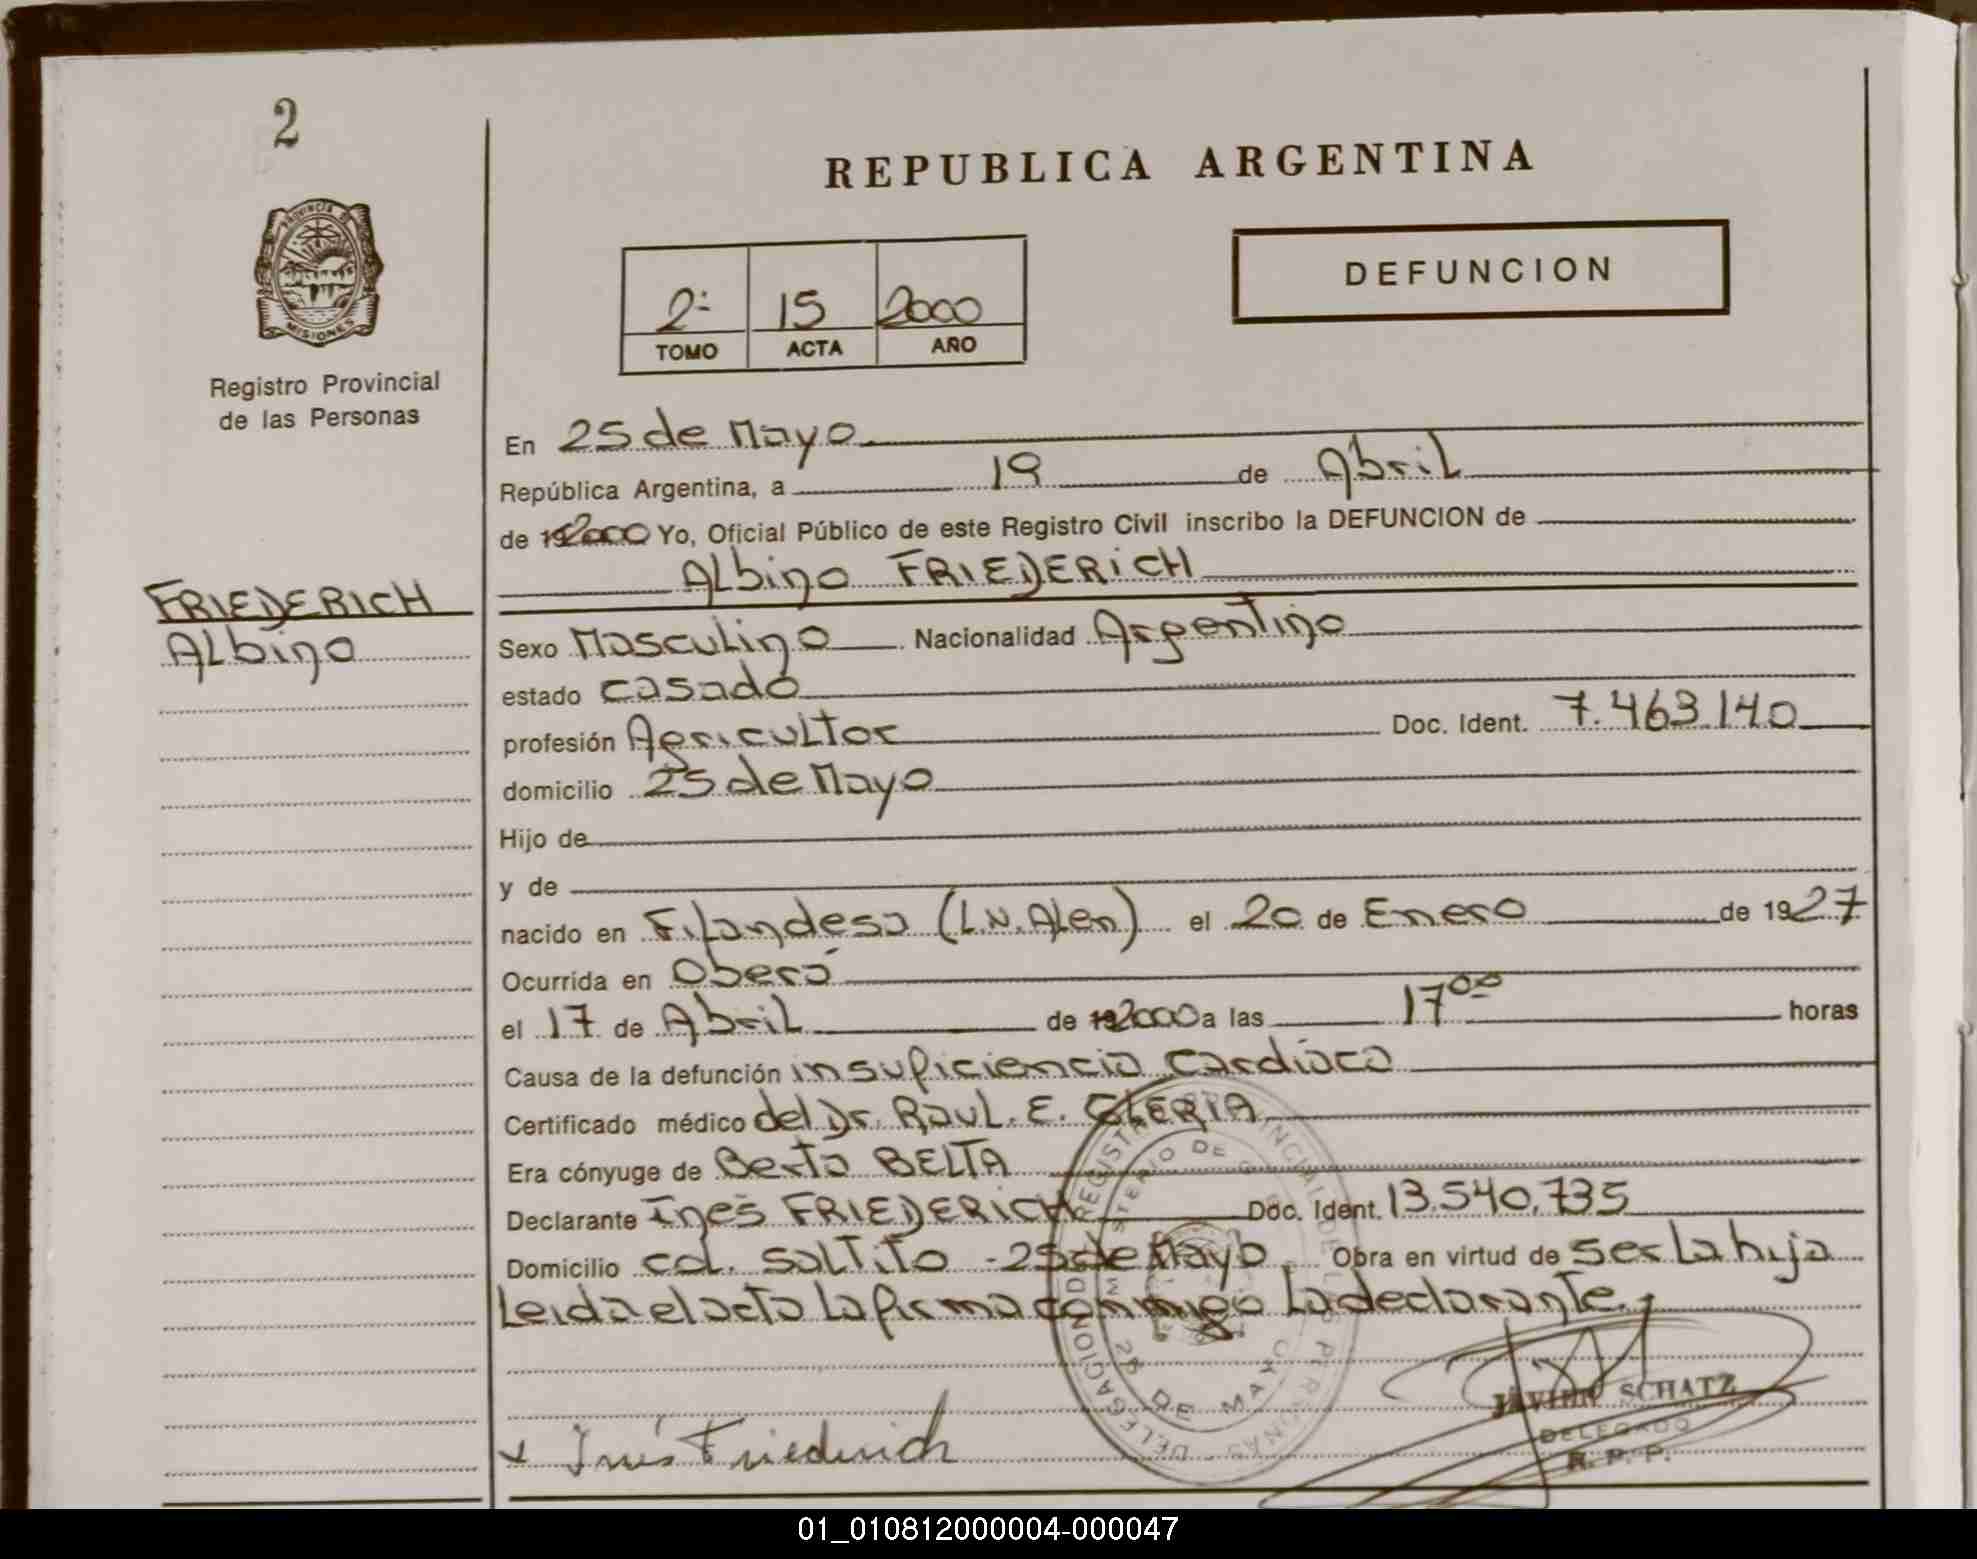 2
REPUBLICA ARGENTINA
DEFUNCION
2º 15 2000
TOMO ACTA AÑO
PROVINCIA DE
MISIONES
Registro Provincial
de las Personas
FRIEDERICH
Albino
En 25 de Mayo
República Argentina, a 19 de Abril
de 192000 Yo, Oficial Público de este Registro Civil inscribo la DEFUNCION de
Albino FRIEDERICH
Sexo Masculino Nacionalidad Argentino
estado casado
profesión Agricultor Doc. Ident. 7.463.140
domicilio 25 de Mayo
Hijo de
y de
nacido en Filandesa (L.N.Alen) el 20 de Enero de 1927
Ocurrida en Oberá
el 17 de Abril de 192000 a las 17⁰⁰ horas
Causa de la defunción insuficiencia cardíaca
Certificado médico del Dr. Raul. E. GLERIA
Era cónyuge de Berta BELTA
Declarante Inés FRIEDERICH Doc. Ident. 13.540.735
Domicilio col. Saltito - 25 de Mayo Obra en virtud de ser la hija
Leida el acta la firma conmigo la declarante.
REGISTRO PROVINCIAL DE LAS PERSONAS
MINISTERIO DE G
DELEGACION
25 DE MAYO
x Inés Friederich
JAVIER SCHATZ
DELEGADO
R. P. P.
01_010812000004-000047